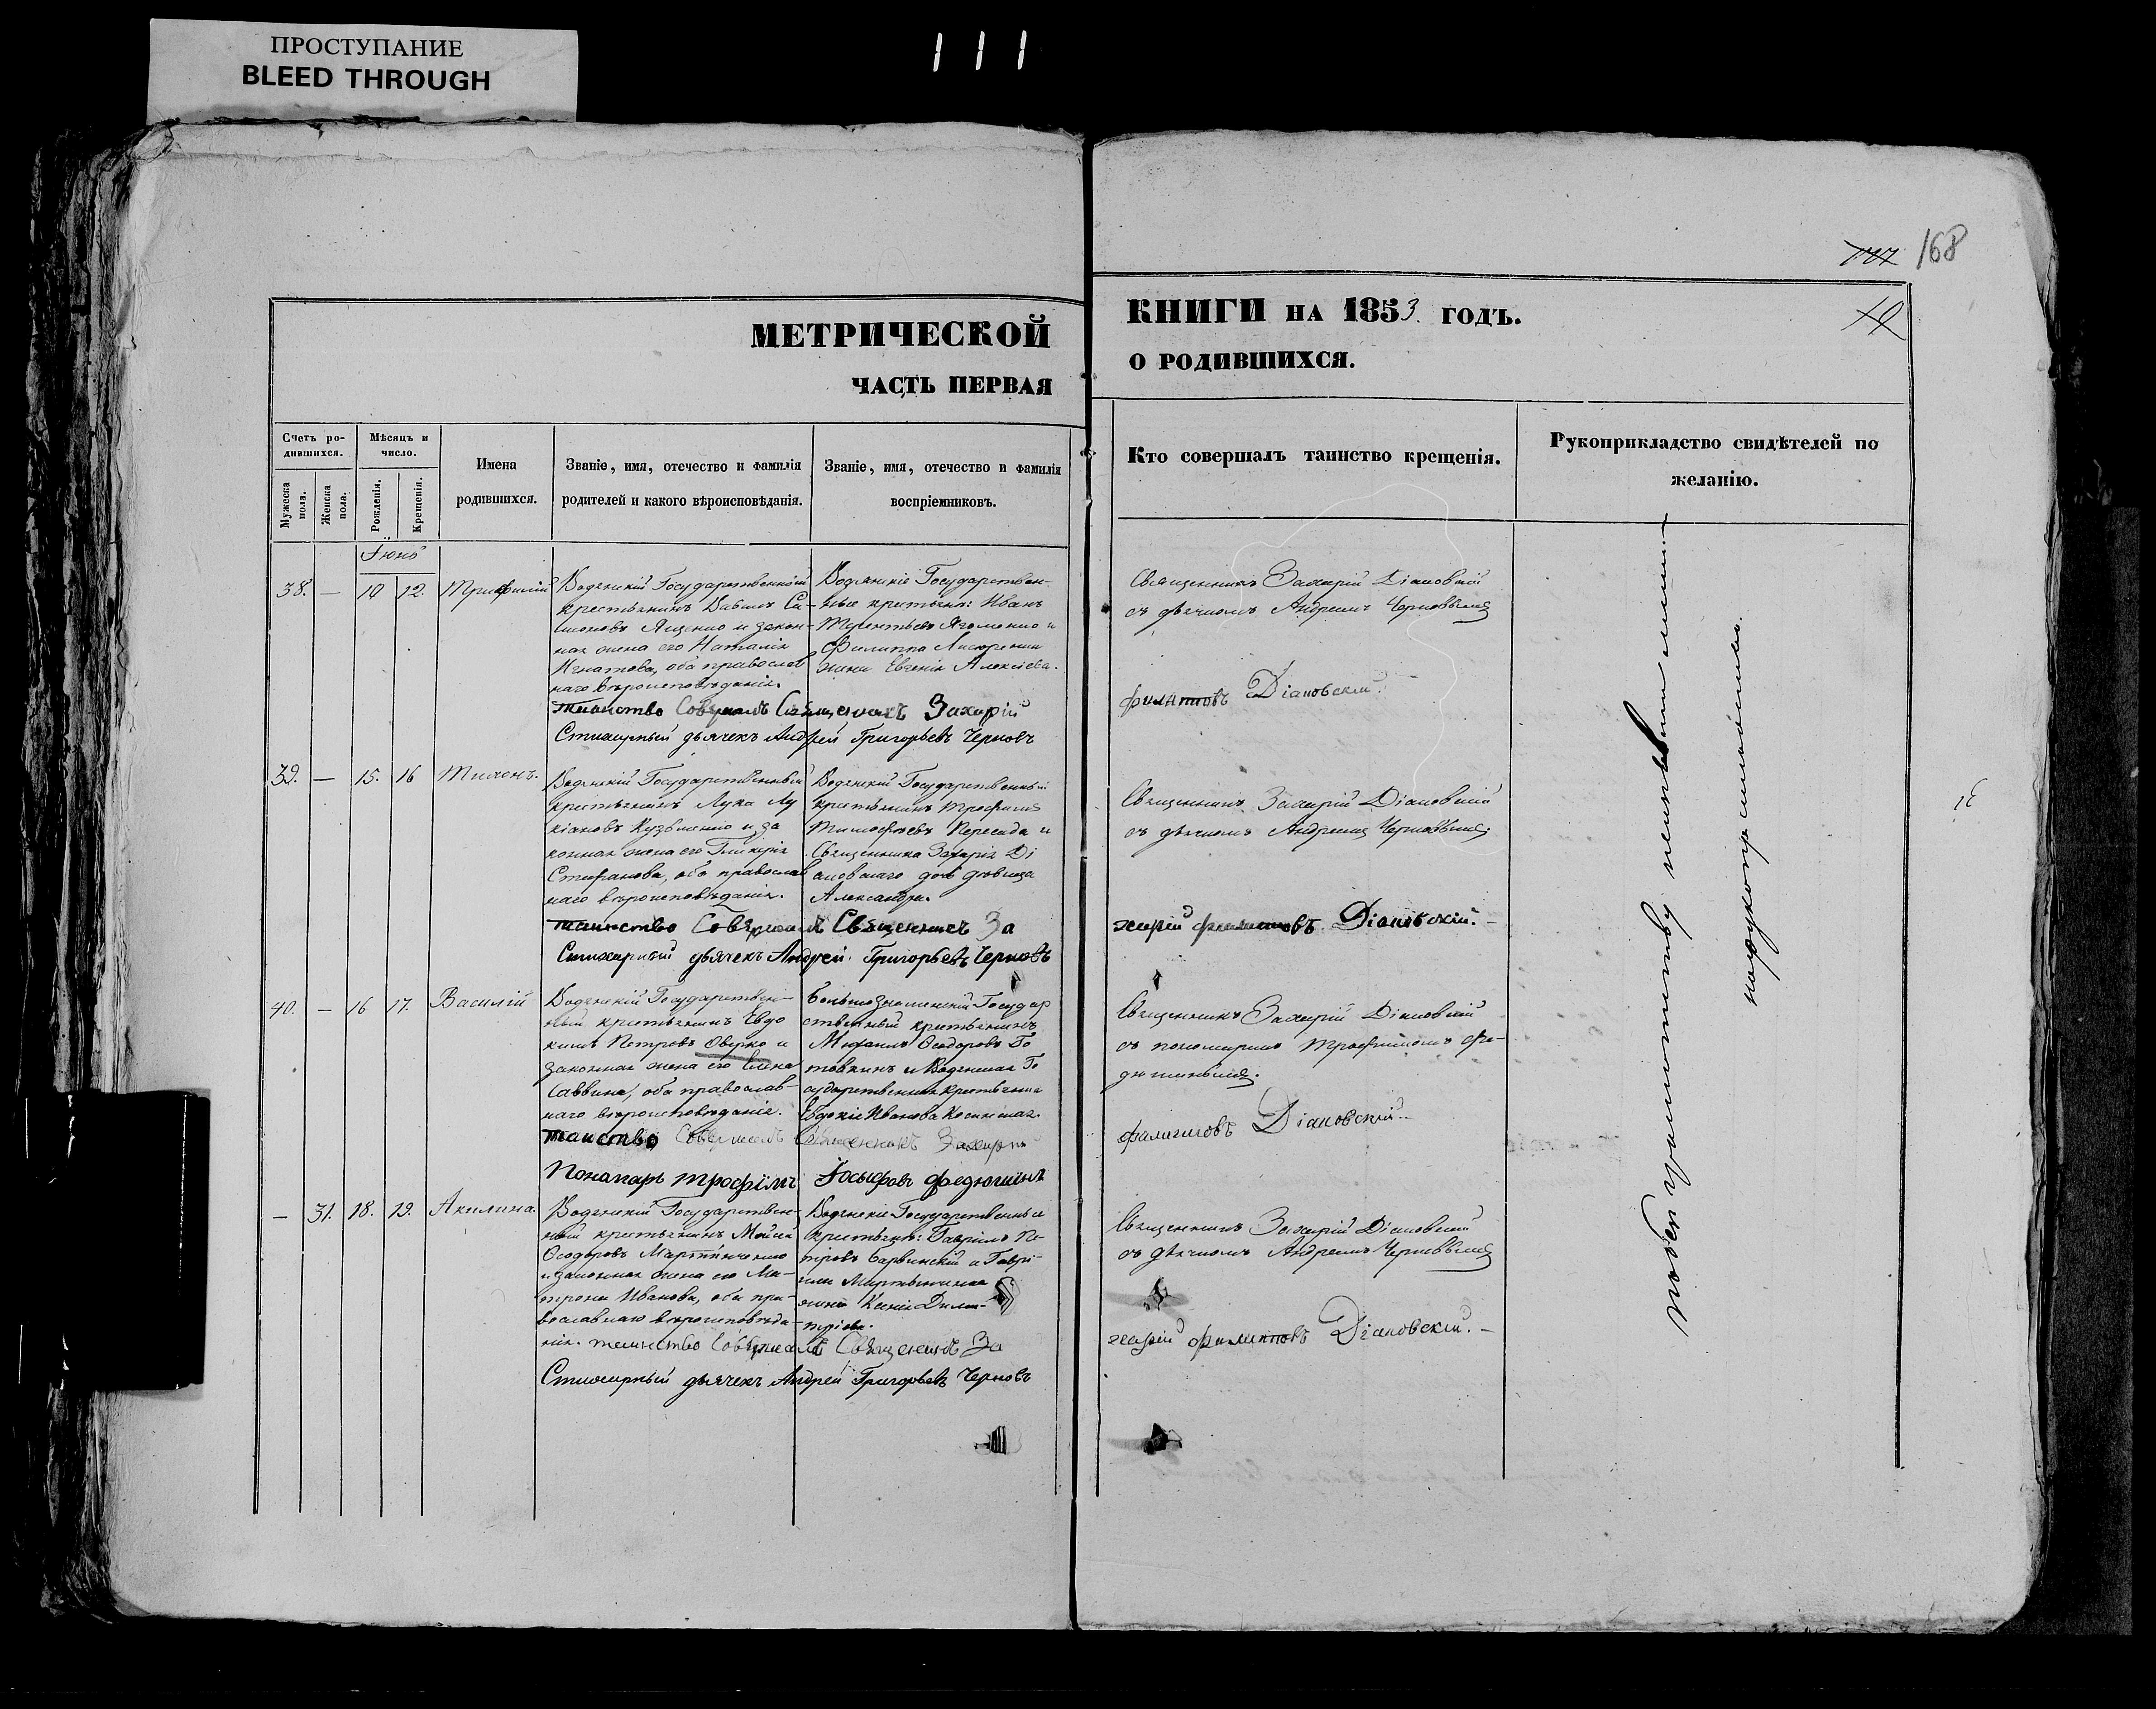 ПРОСТУПАНИЕ
BLEED THROUGH
111
168
МЕТРИЧЕСКОЙ
ЧАСТЬ ПЕРВАЯ
КНИГИ НА 1853 ГОДЪ.
О РОДИВШИХСЯ.
Счетъ ро-
дившихся.
Мужеска пола.
Женска пола.
Мѣсяцъ и
число.
Рожденія.
Крещенія.
Имена
родившихся.
Званіе, имя, отечество и фамилія
родителей и какого вѣроисповѣданія.
Званіе, имя, отечество и фамилія
воспріемниковъ.
Кто совершалъ таинство крещенія.
Рукоприкладство свидѣтелей по
желанію.
Іюнь
38. — 10 12. Трифилій
Водянскій Государственный
крестьянинъ Давидъ Си-
моновъ Яценко и закон-
ная жена его Наталія
Игнатова, оба православ
наго вѣроисповѣданія.
Водянскіе Государствен-
ные крестьяне: Иванъ
Терентьевъ и
Филиппа
жена Евгенія Алексіева.
Священникъ Захарій Діановскій
съ дьячкомъ Андреемъ Черновымъ
таинство Совершалъ Священникъ Захарій
филиповъ Діановскій.
Стихарный дьячекъ Андрей Григорьевъ Черновъ
39. — 15. 16 Тихонъ.
Водянскій Государственный
крестьянинъ Лука Лу
кіановъ Кузьменко и за
конная жена его Гликерія
Стефанова, оба православ
наго вѣроисповѣданія.
Водянскій Государственный
крестьянинъ Трофимъ
Тимофѣевъ Пересада и
Священника Захарія Ді
ановскаго дочь дѣвица
Александра.
Священникъ Захарій Діановскій
съ дьячкомъ Андреемъ Черновымъ.
таинство Совершалъ Священникъ За
харій филиповъ Діановскій. —
Стихарный дьячекъ Андрей Григорьевъ Черновъ
40. — 16 17. Василій
Водянскій Государствен-
ный крестьянинъ Евдо
кимъ Петровъ Оверко и
законная жена его Елена
Саввина, оба православ-
наго вѣроисповѣданія.
Большезнаменскій Государ
ственный крестьянинъ
Михаилъ Ѳеодоровъ Го
товкинъ и Водянская Го
сударственная крестьянка
Евдокія Иванова
Священникъ Захарій Діановскій
съ пономаремъ Трофимомъ Фе-
дюшинымъ.
таинство Совершалъ Священникъ Захарій
филиповъ Діановскій.
Пономарь трофимъ Іосыфовъ федюшинъ
— 31. 18. 19. Акилина.
Водянскій Государствен-
ный крестьянинъ Мойсей
Ѳеодоровъ Мартынченко
и законная жена его Ма-
трона Иванова, оба пра-
вославнаго вѣроисповѣда-
нія.
Водянскіе Государственные
крестьяне: Гавріилъ Пе-
тровъ Барвинскій и Гаврі-
ила
жена Ксенія Дими-
тріева.
Священникъ Захарій Діановскій
съ дьячкомъ Андреемъ Черновымъ
таинство Совершалъ Священникъ За
харій филиповъ Діановскій. —
Стихарный дьячекъ Андрей Григорьевъ Черновъ